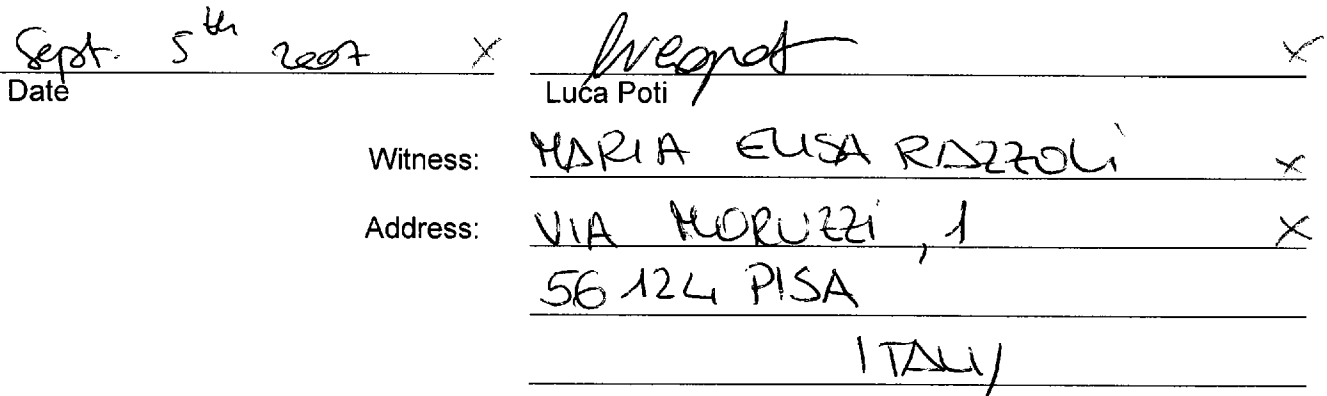 Sept. 5th 2007 X X
Date Luca Poti
Witness: MARIA ELISA RAZZOLI X
Address: VIA MORUZZI, 1 X
56124 PISA
ITALY